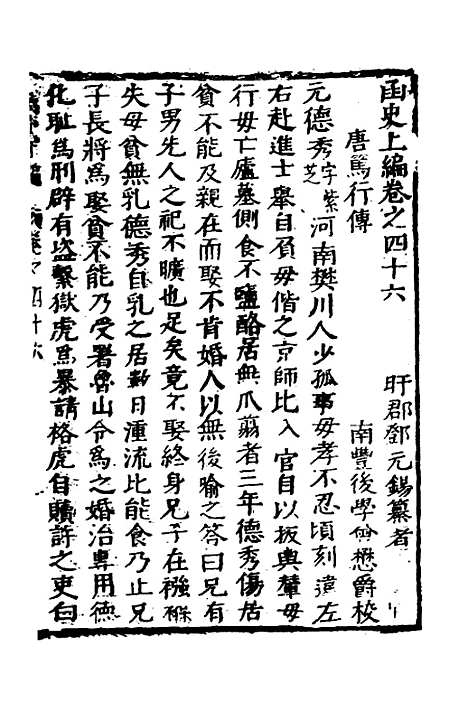 函史上編卷之四十六
盱郡鄧元錫纂著
南豐後學曾懋爵校
唐篤行傳
元德秀字紫芝河南樊川人少孤事母孝不忍頃刻違左
右赴進士舉自負母偕之京師比入官自以板輿輦母
行母亡廬墓側食不鹽酪居無爪翦者三年德秀傷居
貧不能及親在而娶不肯婚人以無後喻之答曰兄有
子男先人之祀不曠也足矣竟不娶終身兄子在襁褓
失母貧無乳德秀自乳之居數日湩流比能食乃止兄
子長將為娶貧不能乃受署魯山令為之婚治專用德
化恥為刑辟有盜繫獄虎為暴請格虎自贖許之吏白